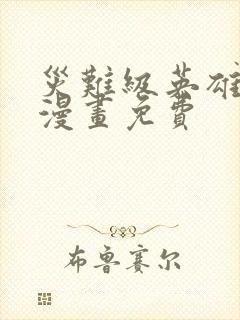 災難級英雄
漫畫免費
布魯賽尔